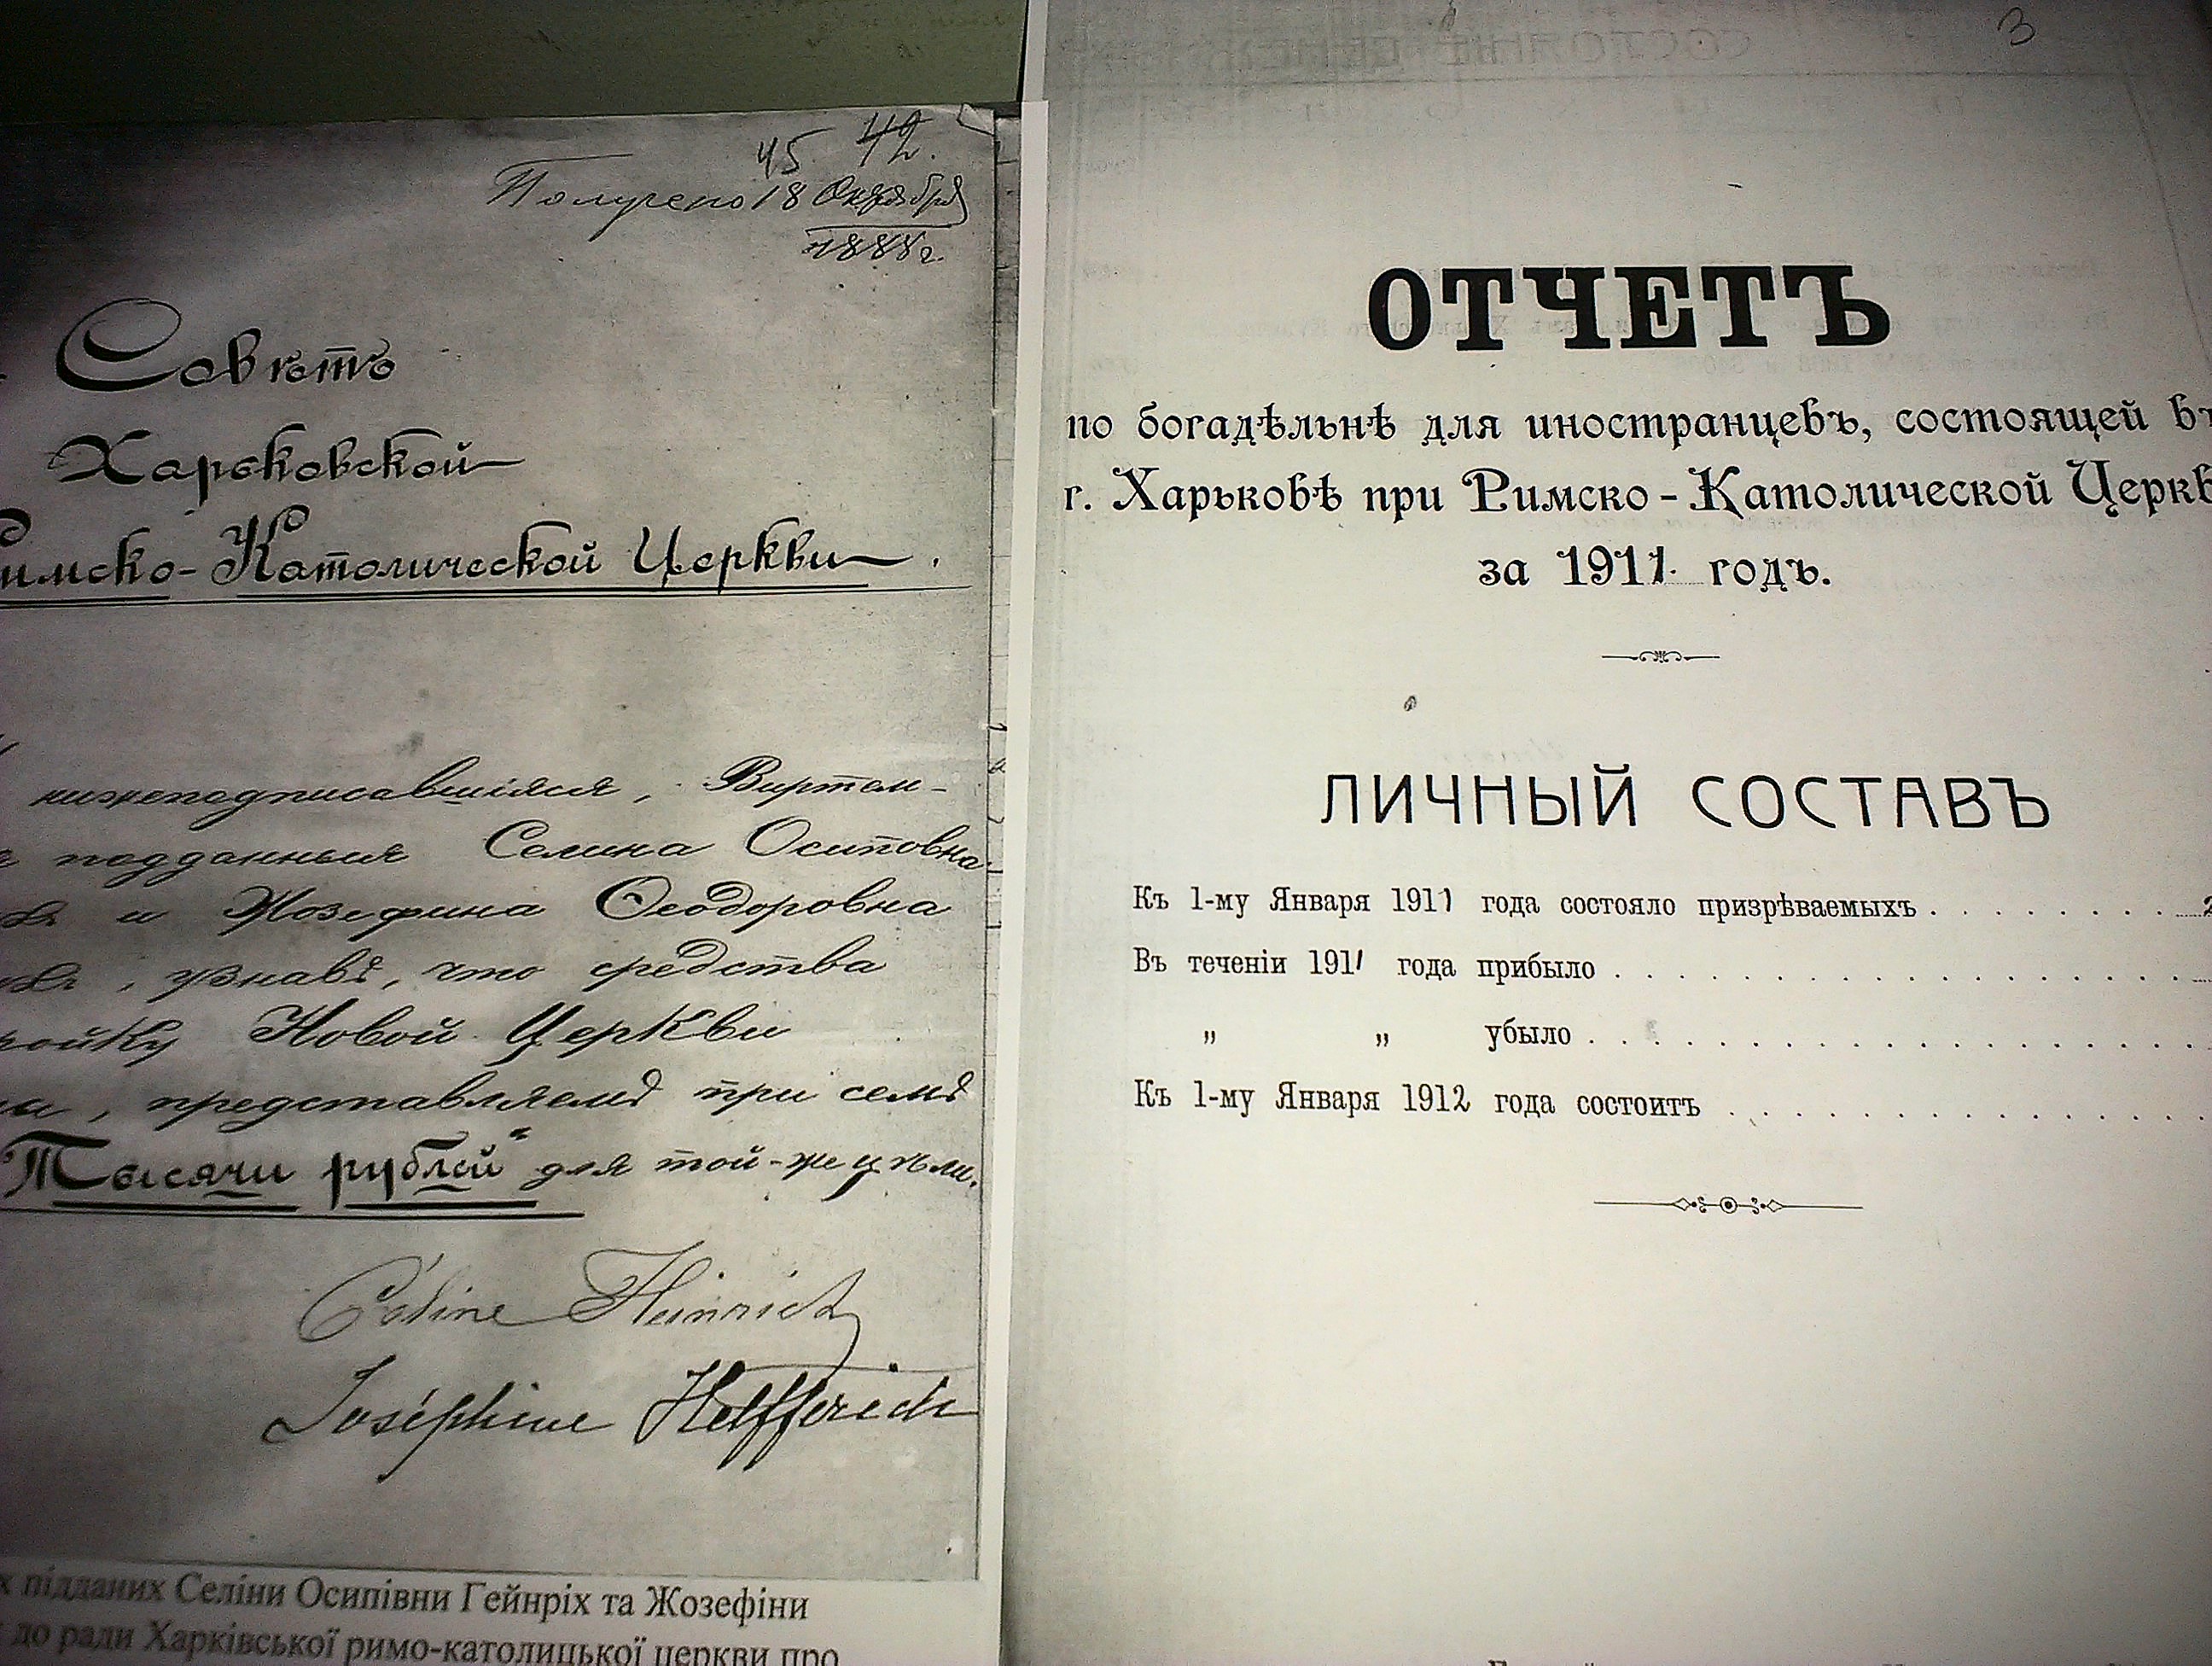 45 42.
Получено 18 Октября
1888 г.
Совѣтъ
Харьковской
Римско-Католической Церкви.
нижеподписавшіяся, Виртем-
подданныя Селина Осиповна
и Жозефина Ѳеодоровна
, узнавъ, что средства
ройку Новой Церкви
ны, представляемъ при семъ
Тысячи рублей" для той-же цѣли.
Céline Heinrich
Joséphine Helfferich
х підданих Селіни Осипівни Гейнріх та Жозефіни
до ради Харківської римо-католицької церкви про
3
ОТЧЕТЪ
по богадѣльнѣ для иностранцевъ, состоящей въ
г. Харьковѣ при Римско-Католической Церкв
за 1911 годъ.
ЛИЧНЫЙ СОСТАВЪ
Къ 1-му Января 1911 года состояло призрѣваемыхъ . . . . . . . . 2
Въ теченіи 1911 года прибыло . . . . . . . . . . . . . . . .
„ „ убыло . . . . . . . . . . . . . . . . .
Къ 1-му Января 1912 года состоитъ . . . . . . . . . . . . .